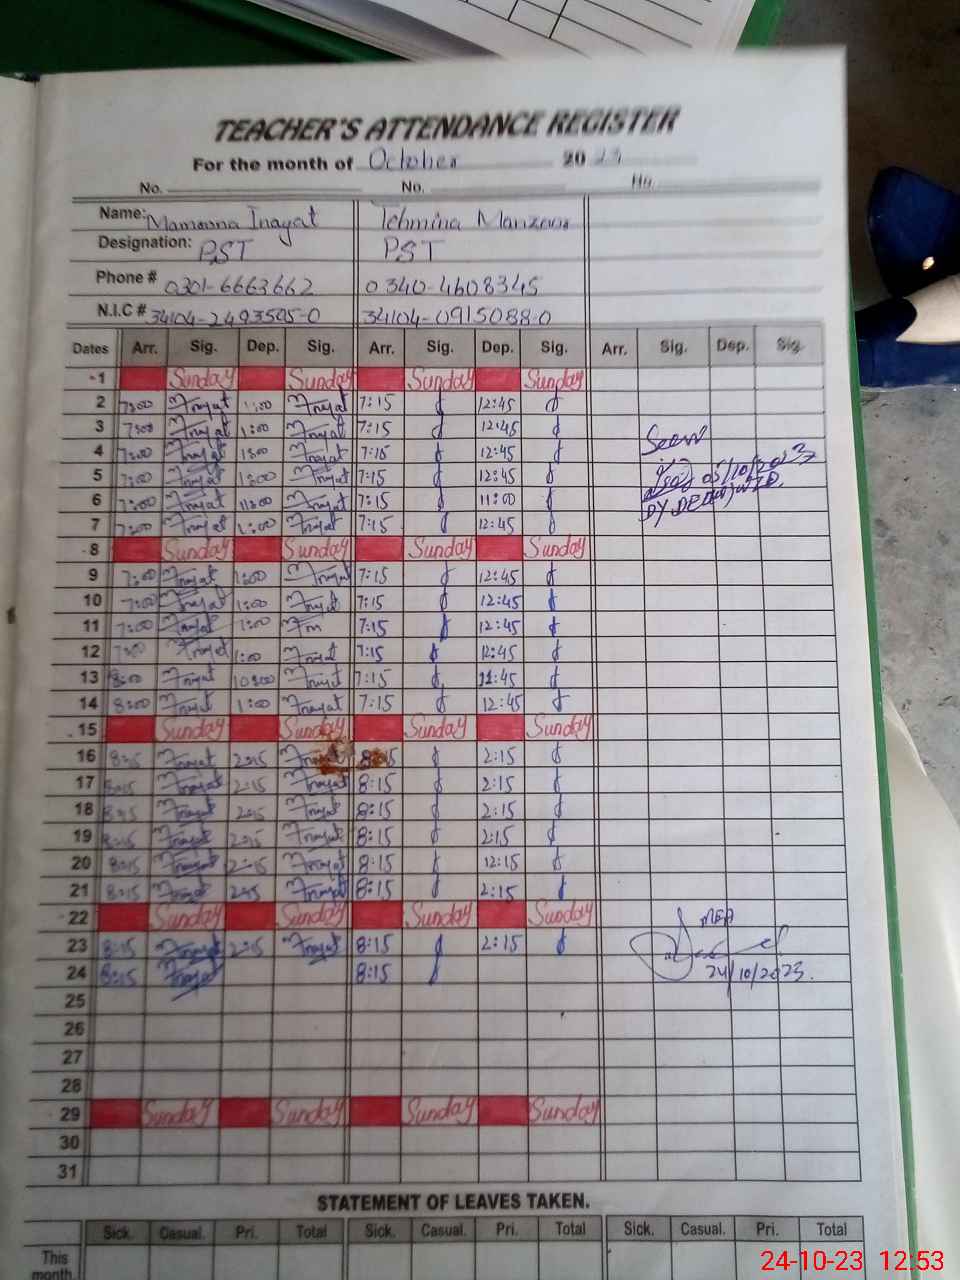 TEACHER'S ATTENDANCE REGISTER
For the month of October 20 23
No. No. No.
Name: Mamoona Inayat Tehmina Manzoor
Designation: PST PST
Phone # 0301-6663662 0340-4608345
N.I.C # 34104-2493505-0 34104-0915088-0
Dates Arr. Sig. Dep. Sig. Arr. Sig. Dep. Sig. Arr. Sig. Dep. Sig.
1 Sunday Sunday Sunday Sunday
2 7:00 Inayat 1:00 Inayat 7:15 12:45
3 7:00 Inayat 1:00 Inayat 7:15 12:45
4 7:00 Inayat 1:00 Inayat 7:15 12:45
Seen
5 7:00 Inayat 1:00 Inayat 7:15 12:45 05/10/2023
6 7:00 Inayat 11:00 Inayat 7:15 11:00
7 7:00 Inayat 1:00 Inayat 7:15 12:45
8 Sunday Sunday Sunday Sunday
9 7:00 Inayat 1:00 Inayat 7:15 12:45
10 7:00 Inayat 1:00 Inayat 7:15 12:45
11 7:00 Inayat 1:00 In 7:15 12:45
12 7:00 Inayat 1:00 Inayat 7:15 12:45
13 8:00 Inayat 10:00 Inayat 7:15 11:45
14 8:00 Inayat 1:00 Inayat 7:15 12:45
15 Sunday Sunday Sunday Sunday
16 8:15 Inayat 2:15 Inayat 8:15 2:15
17 8:15 Inayat 2:15 Inayat 8:15 2:15
18 8:15 Inayat 2:15 Inayat 8:15 2:15
19 8:15 Inayat 2:15 Inayat 8:15 2:15
20 8:15 Inayat 2:15 Inayat 8:15 12:15
21 8:15 Inayat 2:15 Inayat 8:15 2:15
22 Sunday Sunday Sunday Sunday MEA
23 8:15 Inayat 2:15 Inayat 8:15 2:15
24 8:15 Inayat 8:15 24/10/2023.
25
26
27
28
29 Sunday Sunday Sunday Sunday
30
31
STATEMENT OF LEAVES TAKEN.
Sick. Casual. Pri. Total Sick. Casual. Pri. Total Sick. Casual. Pri. Total
This
month
24-10-23 12:53